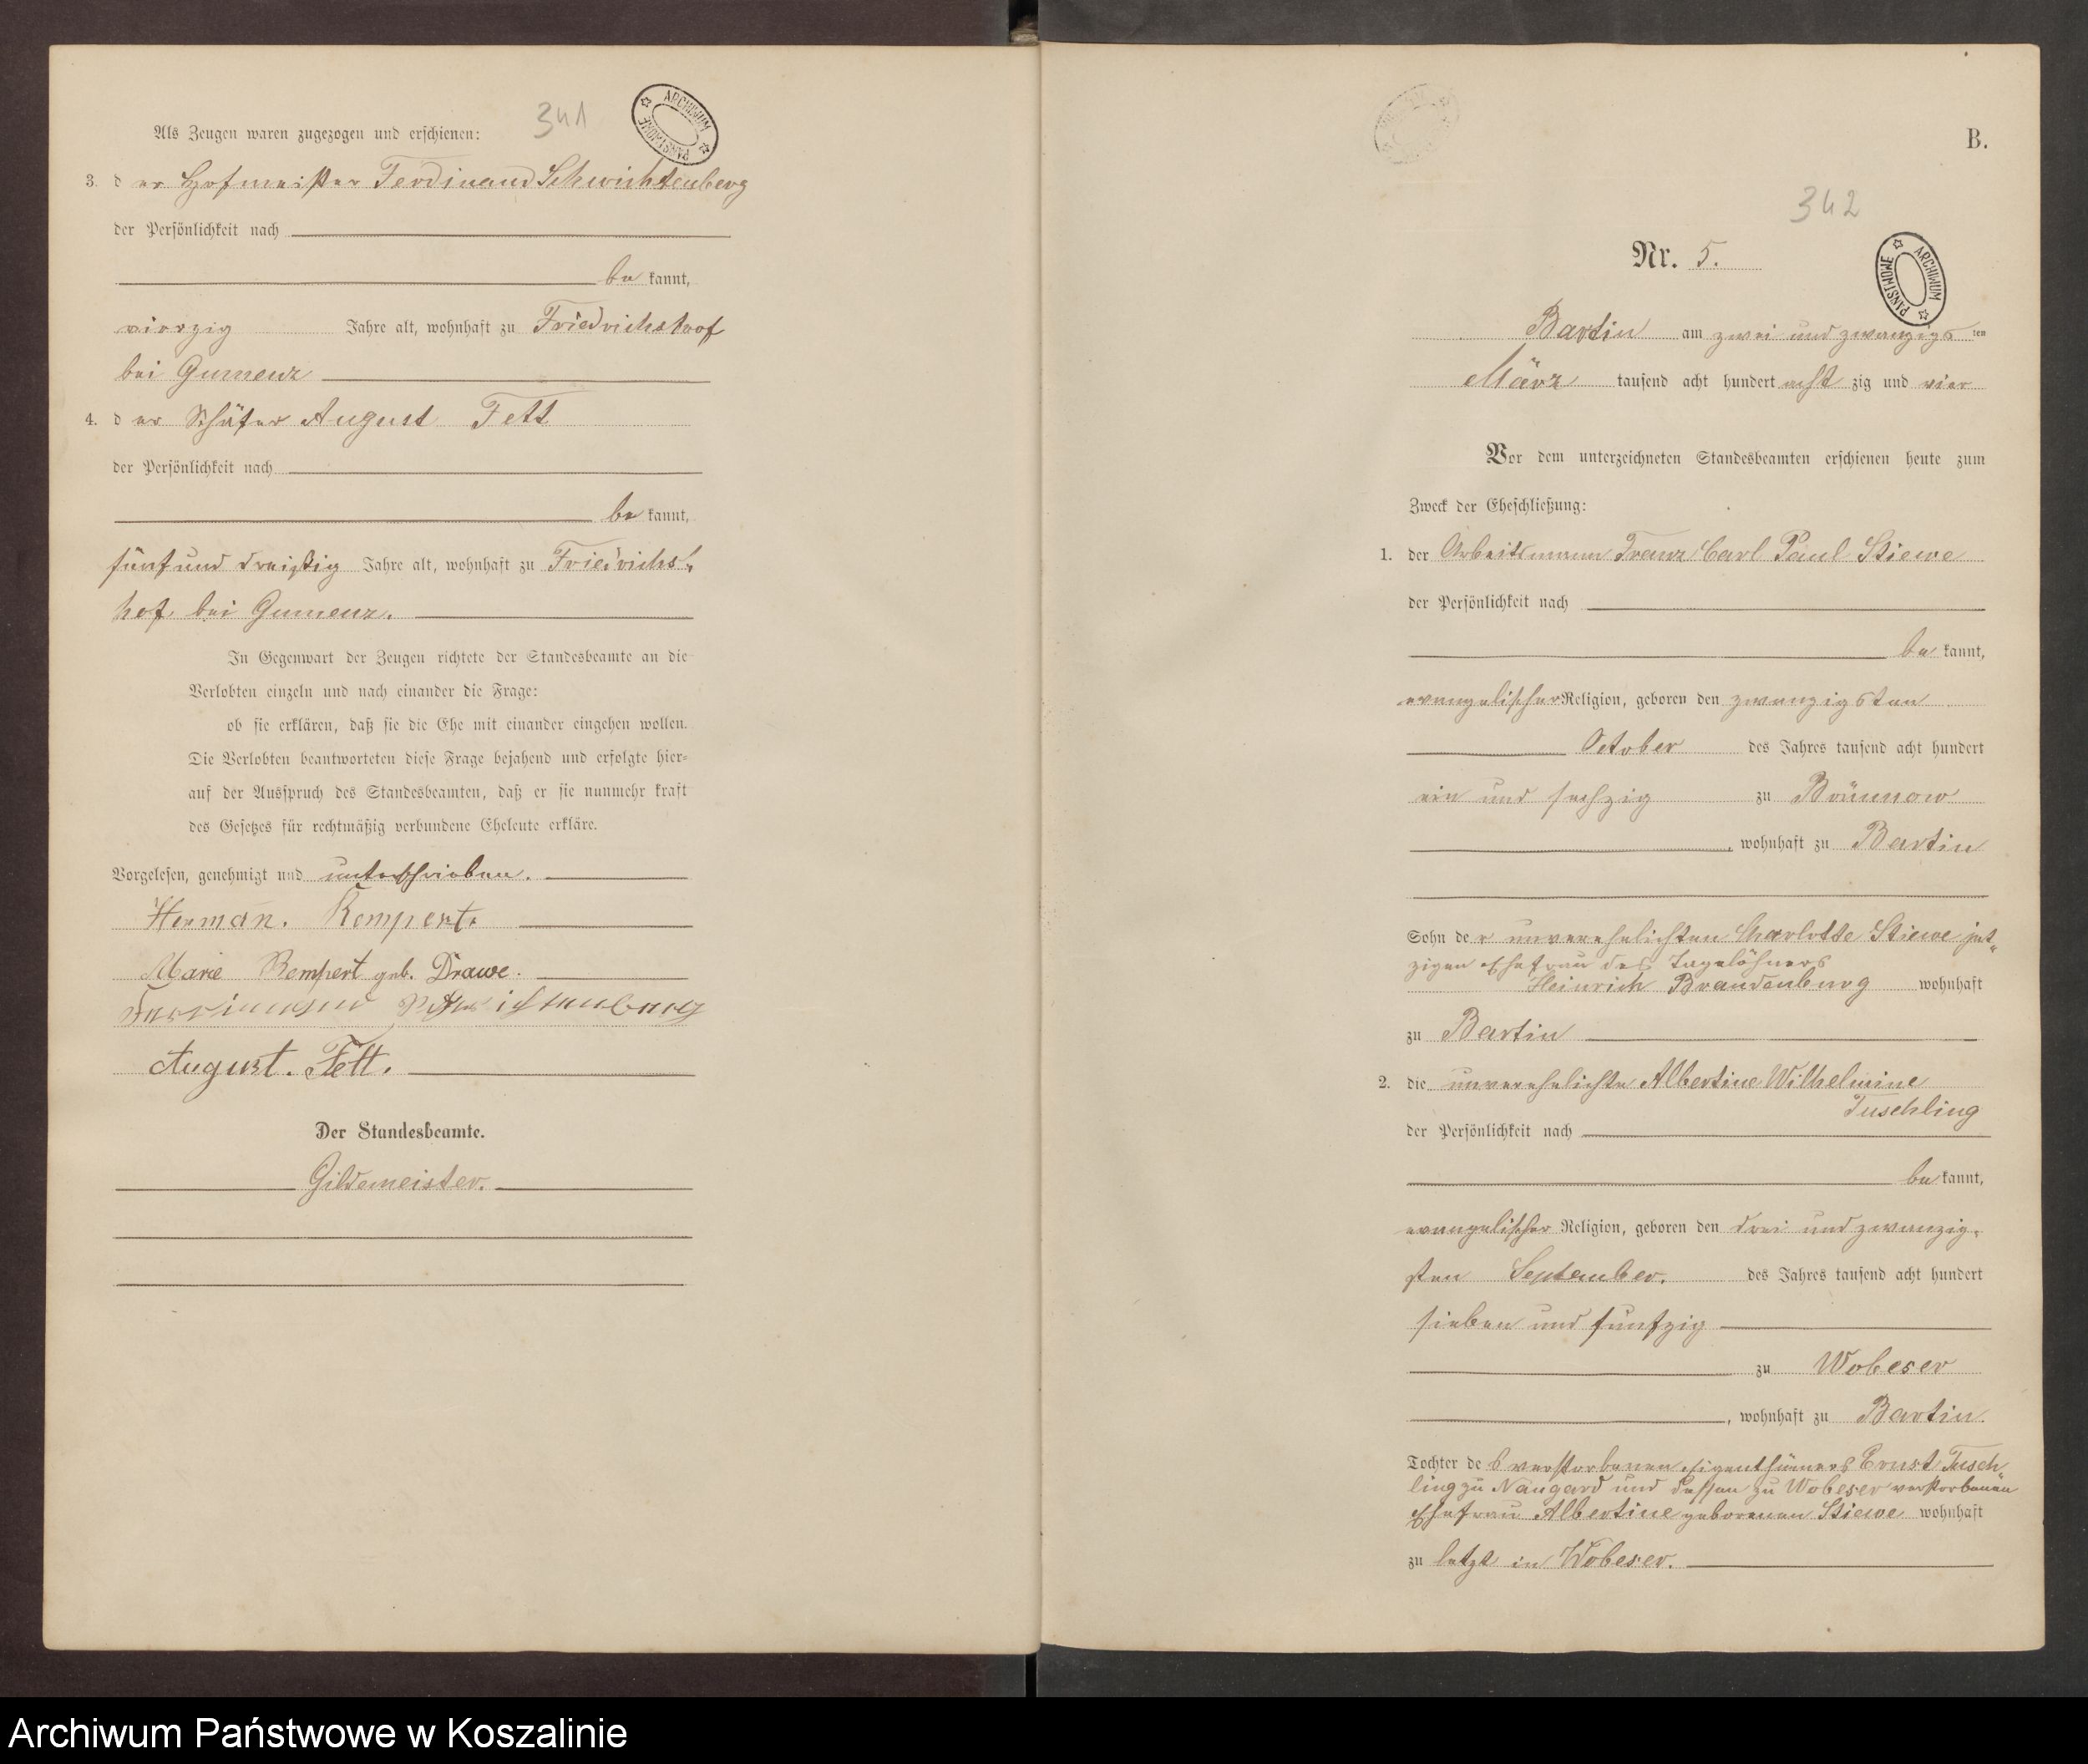 341
ARCHIWUM PAŃSTWOWE
Als Zeugen waren zugezogen und erschienen:
3. der Hofmeister Ferdinand Schwichtenberg
der Persönlichkeit nach
be kannt,
vierzig Jahre alt, wohnhaft zu Friedrichshof
bei Gumenz
4. der Schäfer August Fett
der Persönlichkeit nach
be kannt,
fünfunddreißig Jahre alt, wohnhaft zu Friedrichs-
hof bei Gumenz.
In Gegenwart der Zeugen richtete der Standesbeamte an die
Verlobten einzeln und nach einander die Frage:
ob sie erklären, daß sie die Ehe mit einander eingehen wollen.
Die Verlobten beantworteten diese Frage bejahend und erfolgte hier-
auf der Ausspruch des Standesbeamten, daß er sie nunmehr kraft
des Gesetzes für rechtmäßig verbundene Eheleute erkläre.
Vorgelesen, genehmigt und unterschrieben.
Herman. Rempert.
Marie Rempert geb. Drawe.
Ferdinand Schwichtenberg
August. Fett.
Der Standesbeamte.
Gildemeister.
B.
342
Nr. 5.
ARCHIWUM PAŃSTWOWE
Bartin am zwei und zwanzigsten
März tausend acht hundert acht zig und vier
Vor dem unterzeichneten Standesbeamten erschienen heute zum
Zweck der Eheschließung:
1. der Arbeitsmann Franz Carl Paul Stiewe
der Persönlichkeit nach
be kannt,
evangelischer Religion, geboren den zwanzigsten
October des Jahres tausend acht hundert
ein und sechzig zu Brünnow
, wohnhaft zu Bartin
Sohn der unverehelichten Charlotte Stiewe jet-
zigen Ehefrau des Tagelöhners
Heinrich Brandenburg wohnhaft
zu Bartin
2. die unverehelichte Albertine Wilhelmine
Tuschling
der Persönlichkeit nach
be kannt,
evangelischer Religion, geboren den drei und zwanzig-
sten September. des Jahres tausend acht hundert
sieben und fünfzig
zu Wobeser
, wohnhaft zu Bartin.
Tochter des verstorbenen Eigenthümers Ernst Tusch
ling zu Naugard und dessen zu Wobeser verstorbenen
Ehefrau Albertine geborenen Stiewe wohnhaft
zu letzt in Wobeser.
Archiwum Państwowe w Koszalinie